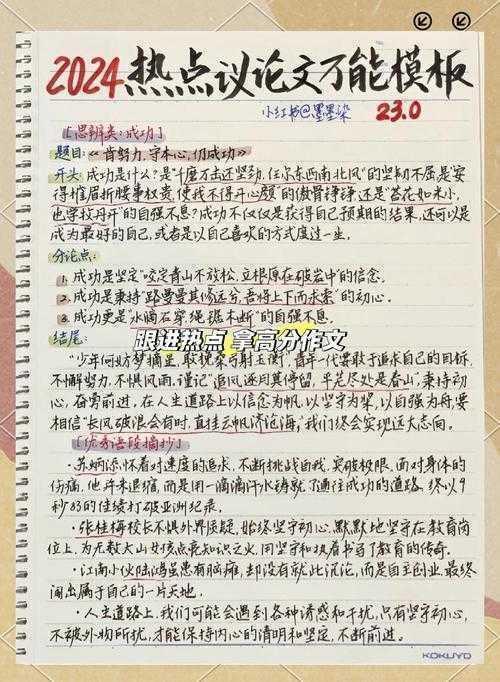 2024热点议论文万能模板
小红书@墨墨染 23.0
[思辨类:成功]
题目:《肯努力,守本心,仍成功》
开头:成功是什么?是"千磨万击还坚劲,任尔东西南北风"的坚韧不屈是"安
得摧眉折腰事权贵,使我不得开心颜"的傲骨铮铮,还是"苔花如米小,
也学牡丹开"的自强不息?成功不仅仅是获得自己预期的结果,还可以是
成为最好的自己,或者是以自己喜欢的方式度过一生。
分论点:
1. 成功是坚定"咬定青山不放松,立根原在破岩中"的信念。
2. 成功是秉持"路曼曼其修远兮,吾将上下而求索"的初心。
3. 成功更是"水滴石穿,绳锯木断"的自强不息。
跟进热点 拿高分作文
结尾:
"少年何妨梦摘星,敢挽桑弓射玉衡"青年一代要敢于追求自己的目标,
不懈努力,不惧风雨,谨记"追风逐月莫停留,平芜尽处是春山",秉持初
心,奋勇前进。在人生道路上以信念为帆,以坚守为桨,以自强为舟要
相信"长风破浪会有时,直挂云帆济沧海,"我们终会实现远大志向。
[优秀语段摘抄]
·苏炳添,怀着对速度的追求,不断挑战自我,突破极限,面对身体的
伤痛,他并未退缩,而是用一滴滴汗水铸就了通往成功的道路,终以9
秒83的佳绩打破亚洲纪录。
·张桂梅校长不惧外界质疑,始终坚守初心,默默地坚守在教育岗
位上,为无数大山女孩点亮知识之火,用坚守和执着书写了教育的传奇。
·江南小伙陆鸿虽患有脑瘫,却没有就此沉沦,而是自主创业,最终
闯出属于自己的一片天地。
·人生道路上,我们可能会遇到各种诱惑和干扰,只有坚守初心,
不被外物所扰,才能保持内心的清明和坚定,不断前进。
KOKUYO